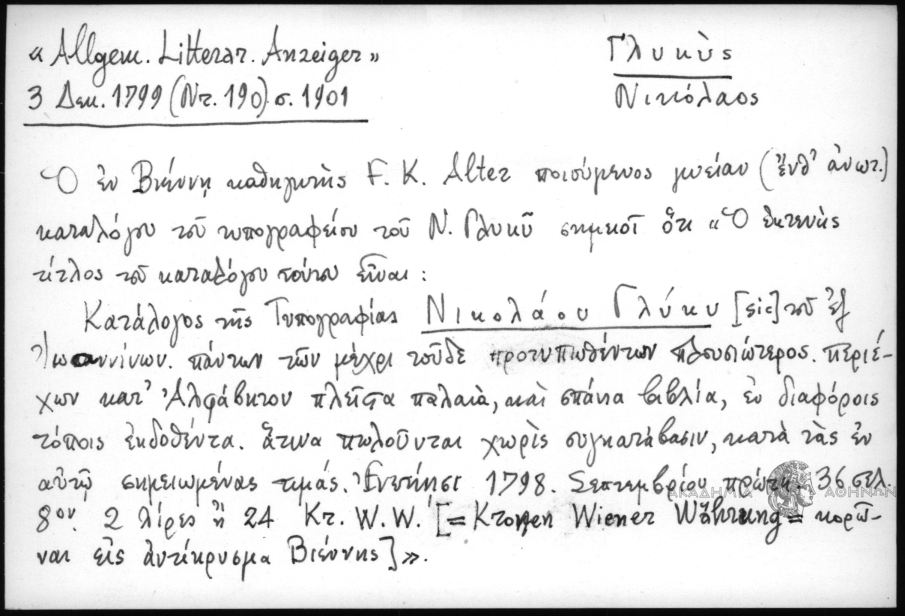 « Allgem. Litterar. Anzeiger »
Γλυκὺς
3 Δεκ. 1799 (Nr. 190) σ. 1901
Νικόλαος
Ὁ ἐν Βιέννῃ καθηγητὴς F. K. Alter ποιούμενος μνείαν (ἔνθ' ἀνωτ.)
καταλόγου τοῦ τυπογραφείου τοῦ Ν. Γλυκῦ σημειοῖ ὅτι « Ὁ ἐκτενὴς
τίτλος τοῦ καταλόγου τούτου εἶναι :
Κατάλογος τῆς Τυπογραφίας Νικολάου Γλύκυ [sic] τοῦ ἐξ
Ἰωαννίνων. πάντων τῶν μέχρι τοῦδε προτυπωθέντων πλουσιώτερος. περιέ-
χων κατ' Ἀλφάβητον πλεῖστα παλαιὰ, καὶ σπάνια βιβλία, ἐν διαφόροις
τόποις ἐκδοθέντα. ἅτινα πωλοῦνται χωρὶς συγκατάβασιν, κατὰ τὰς ἐν
αὐτῷ σημειωμένας τιμάς. Ἐνετίησι 1798. Σεπτεμβρίου πρώτῃ. 36 σελ.
8ον. 2 λίρες ἢ 24 Kr. W. W. [= Kronen Wiener Währung = κορῶ-
ναι εἰς ἀντίκρυσμα Βιέννης] ».
ΑΚΑΔΗΜΙΑ ΑΘΗΝΩΝ